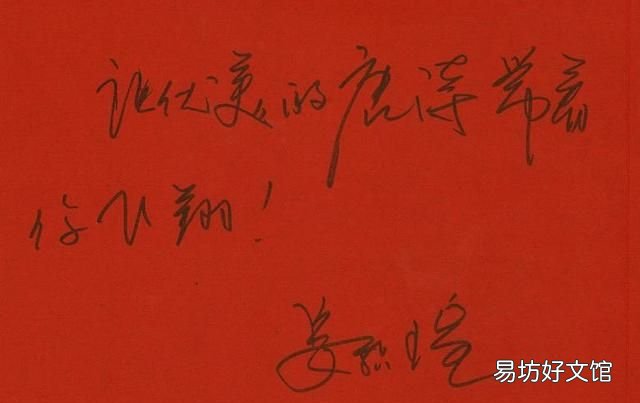 让优美的唐诗带着
你飞翔!
易坊好文馆